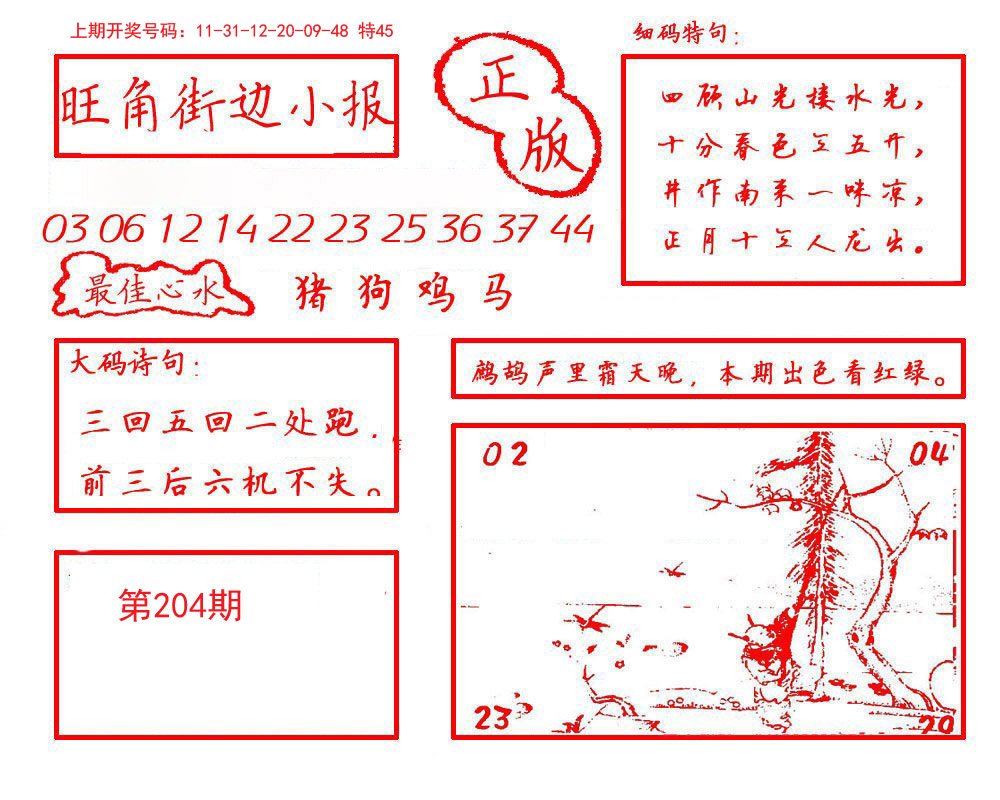 上期开奖号码：11-31-12-20-09-48 特45
旺角街边小报
正版
细码特句：
四顾山光接水光，
十分春色至五开，
井作南来一味凉，
正月十至人龙出。
03 06 12 14 22 23 25 36 37 44
最佳心水
猪 狗 鸡 马
大码诗句：
三回五回二处跑．
前三后六机不失。
鹧鸪声里霜天晚，本期出色看红绿。
第204期
02
04
23
20